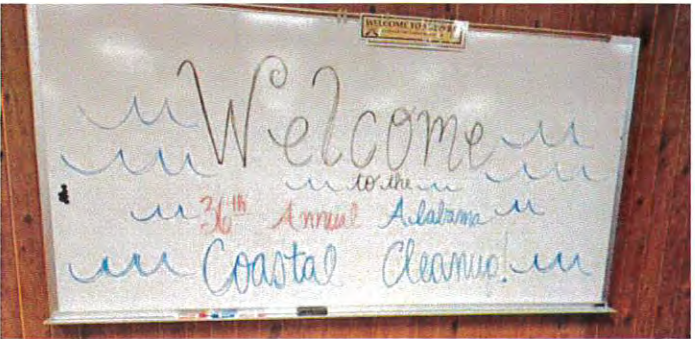 WELCOME TO
Welcome
to the
36th Annual Alabama
Coastal Cleanup!